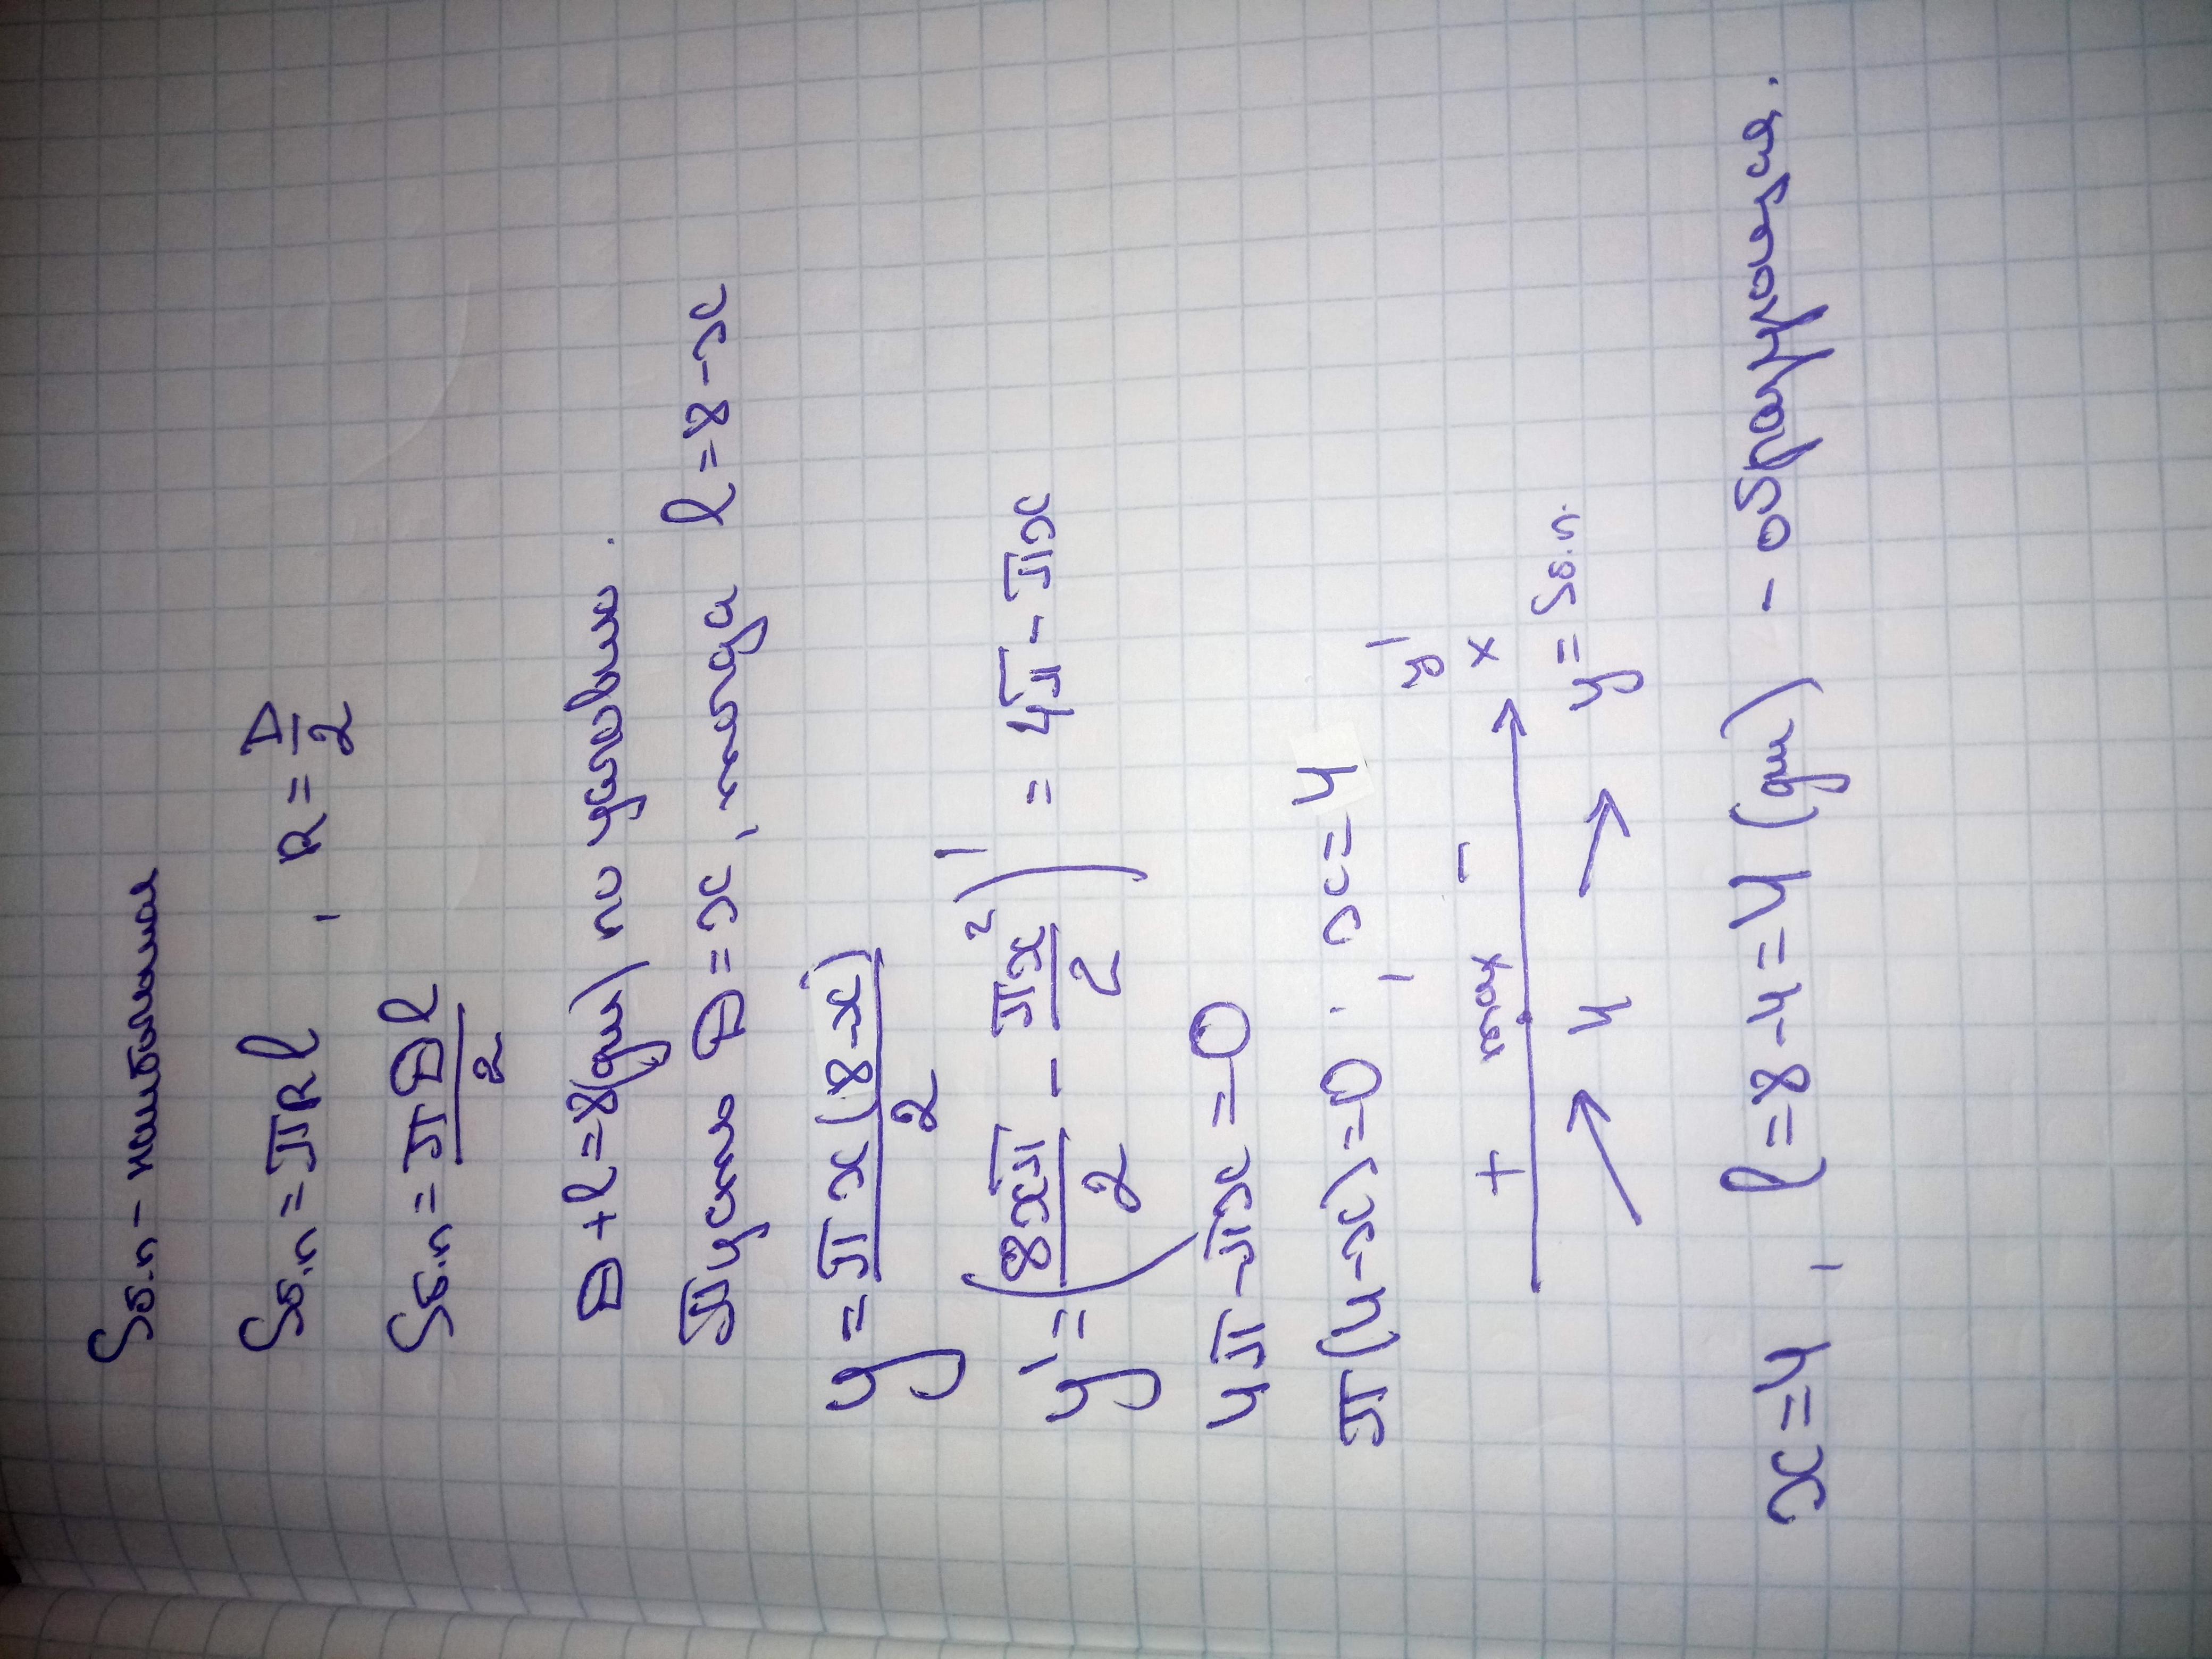 Sб.п - наибольшая
Sб.п = πRl , R = D/2
Sб.п = πDl/2
D + l = 8(дм) по условию.
Пусть D = x, тогда l = 8 - x
y = πx(8-x)/2
y' = (8xπ/2 - πx²/2)' = 4π - πx
4π - πx = 0
π(4-x) = 0 ; x = 4
y'
+ max - x
↗ 4 ↘ y = Sб.п.
x = 4 , l = 8 - 4 = 4 (дм) - образующая.